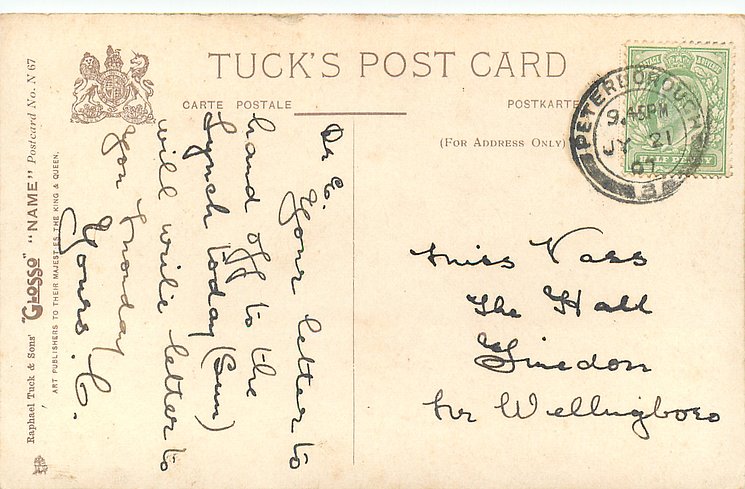 TUCK'S POST CARD
CARTE POSTALE
POSTKARTE
(FOR ADDRESS ONLY)
PETERBOROUGH
9.45PM
JY 21
07
3
POSTAGE
HALF PENNY
Raphael Tuck & Sons' "GLOSSO" "NAME" Postcard No. N 67
ART PUBLISHERS TO THEIR MAJESTIES THE KING & QUEEN.
Dr E.
Your letter to
hand off to the
Lynch today (Sun)
will write letter to
you Monday
Yours. C.
Miss Vass
The Hall
Finedon
Nr Wellingboro